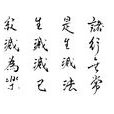 諸行無常
是生滅法
生滅滅已
寂滅為樂